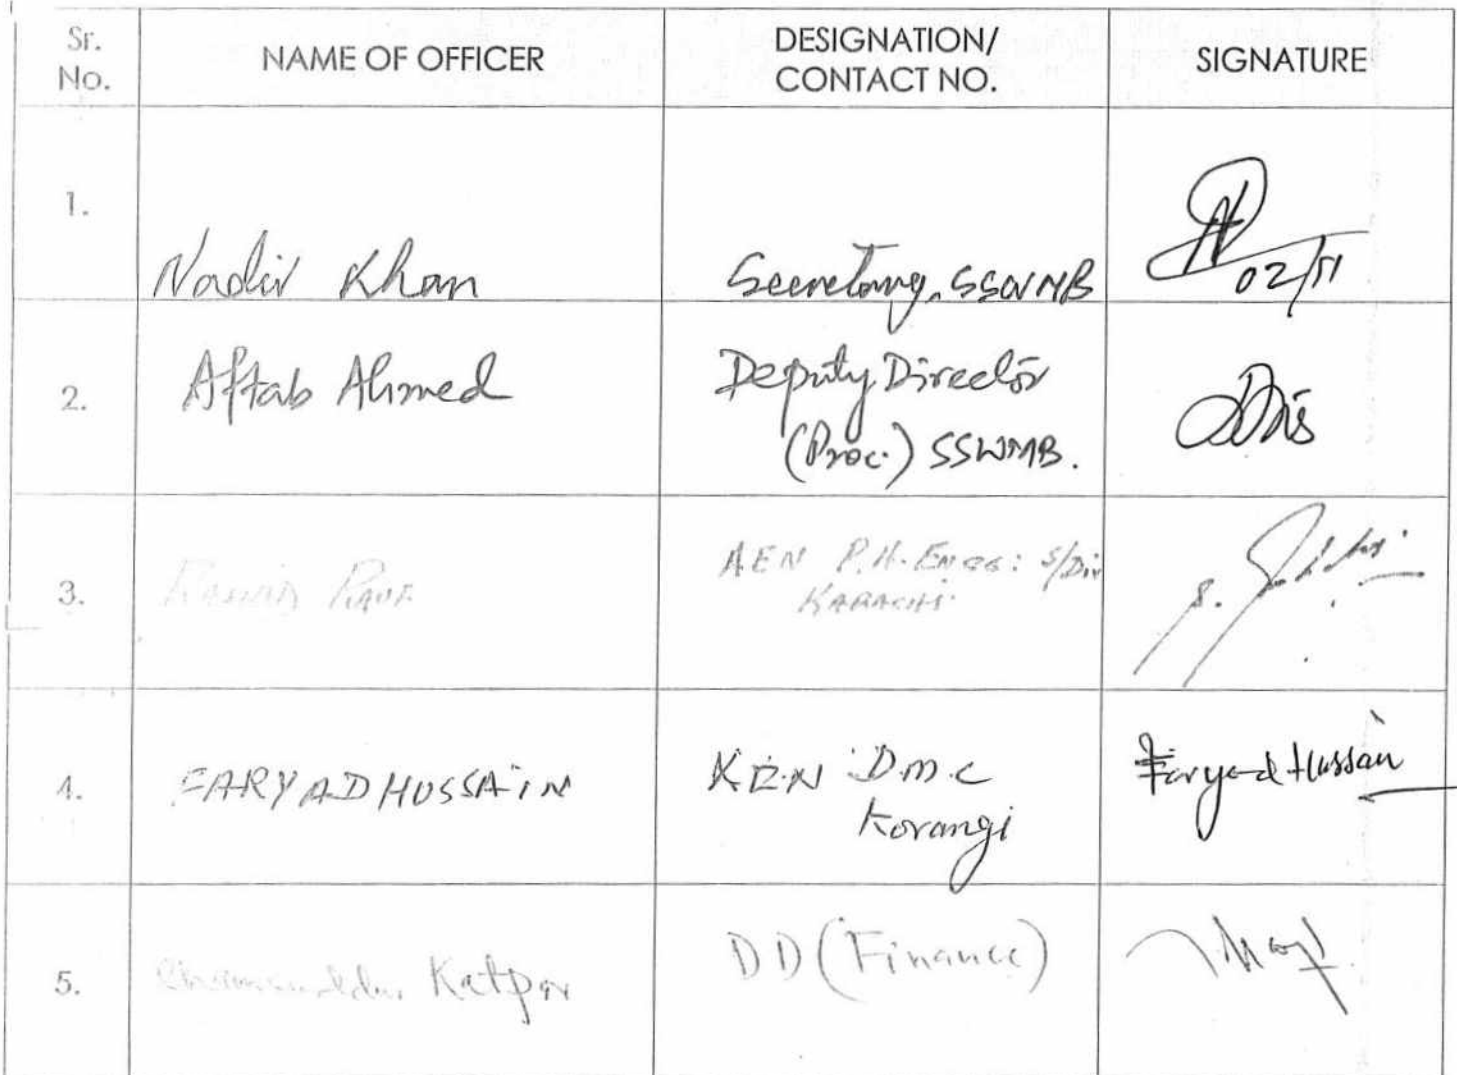 Sr.
No.
NAME OF OFFICER
DESIGNATION/
CONTACT NO.
SIGNATURE
1.
Nadir Khan
Secretary, SSWMB
02/11
2.
Aftab Ahmed
Deputy Director
(Proc.) SSWMB.
3.
Rauf
AEN P.H. Engg: S/Div
KARACHI.
4.
FARYAD HUSSAIN
XEN DMC
Korangi
Faryad Hussain
5.
Katpar
DD (Finance)